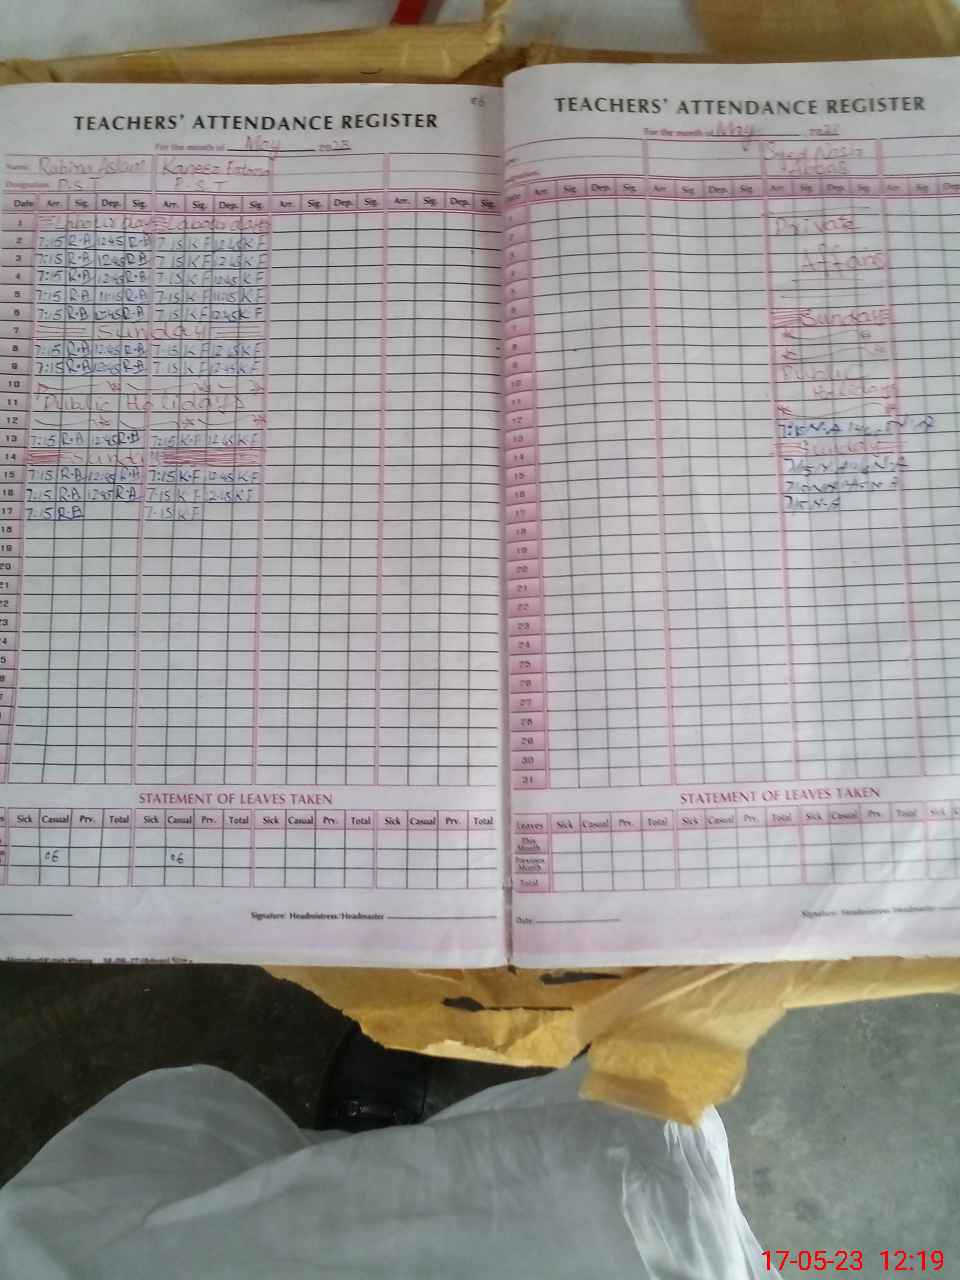 06
TEACHERS' ATTENDANCE REGISTER
For the month of May 2023
Name: Rabina Aslam Kaneez Fatima
Designation: P.S.T P.S.T
Date Arr. Sig. Dep. Sig. Arr. Sig. Dep. Sig. Arr. Sig. Dep. Sig. Arr. Sig. Dep. Sig.
1
2 7:15 R.A 12:45 R.A 7:15 K F 12:45 K.F
3 7:15 R.A 12:45 R.A 7:15 K F 12:45 K.F
4 7:15 R.A 12:45 R.A 7:15 K F 12:45 K.F
5 7:15 R.A 11:15 R.A 7:15 K F K.F
6 7:15 R.A 12:45 R.A 7:15 K F 12:45 K.F
7 Sunday
8 7:15 R.A 12:45 R.A 7:15 K F 12:45 K F
9 7:15 R.A 12:45 R.A 7:15 K F 12:45 K.F
10
11 Public Holidays
12
13 7:15 R.A 12:45 R.A 7:15 K.F 12:45 K.F
14 Sunday
15 7:15 R.A 12:45 R.A 7:15 K.F 12:45 K F
16 7:15 R.A 12:45 R.A 7:15 K F 12:45 K F
17 7:15 R.A 7:15 K F
18
19
20
21
22
23
24
STATEMENT OF LEAVES TAKEN
Sick Casual Prv. Total Sick Casual Prv. Total Sick Casual Prv. Total Sick Casual Prv. Total
06 06
Signature: Headmistress/Headmaster
TEACHERS' ATTENDANCE REGISTER
For the month of May
Syed Nasir
Abbas
Arr. Sig. Dep. Sig. Arr. Sig. Dep. Sig. Arr. Sig. Dep. Sig. Arr. Sig. Dep
1
2 Private
3
4 Affairs
5
6
7 Sunday
8
9
10 Public
11 Holidays
12
13 7:15 N.A N.A
14 Sunday
15 7:15 N.A N.A
16 N.A
17 7:15 N.A
18
19
20
21
22
23
24
25
26
27
28
29
30
31
STATEMENT OF LEAVES TAKEN
Leaves Sick Casual Prv. Total Sick Casual Prv. Total Sick Casual Prv. Total Sick
This Month
Previous Month
Total
Date
Signature: Headmistress/Headmaster
17-05-23 12:19